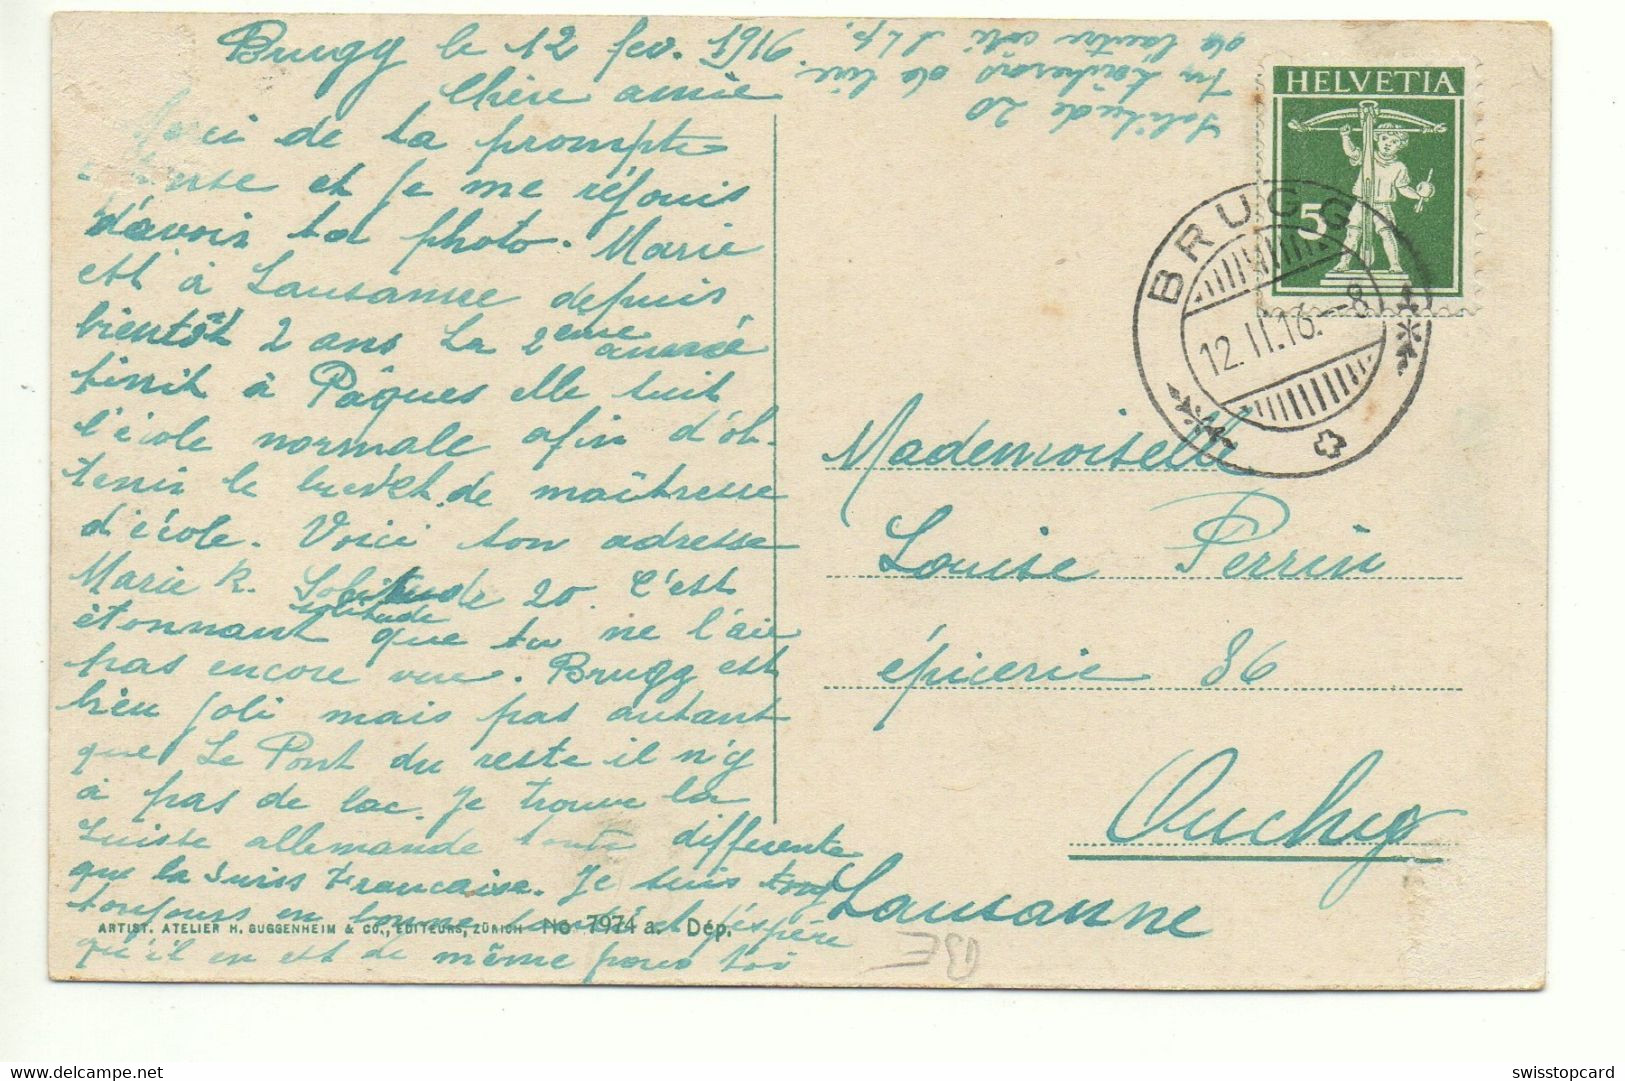 Brugg le 12 fev. 1916
Chère amie
Merci de ta prompte
et je me réjouis
d'avoir ta photo. Marie
est à Lausanne depuis
bientôt 2 ans La 2ème année
finit à Pâques elle suit
l'école normale afin d'ob-
tenir le brevet de maîtresse
d'école. Voici son adresse
Marie R. Solitude 20. C'est
solitude
étonnant que tu ne l'aie
pas encore vue. Brugg est
bien joli mais pas autant
que Le Pont du reste il n'y
à pas de lac. Je trouve la
Suisse allemande toute differente
que la Suiss Francaise. Je suis
toujours en bonne santé et j'espère
qu'il en est de même pour toi
Solitude 20
Tu de lire
de l'autre coté S.t.p.
HELVETIA
5
BRUGG
12.II.16.-8
Mademoiselle
Louise Perrin
épicerie 86
Ouchy
Lausanne
ARTIST. ATELIER H. GUGGENHEIM & CO., EDITEURS, ZÜRICH No 7974 a. Dép.
swisstopcard